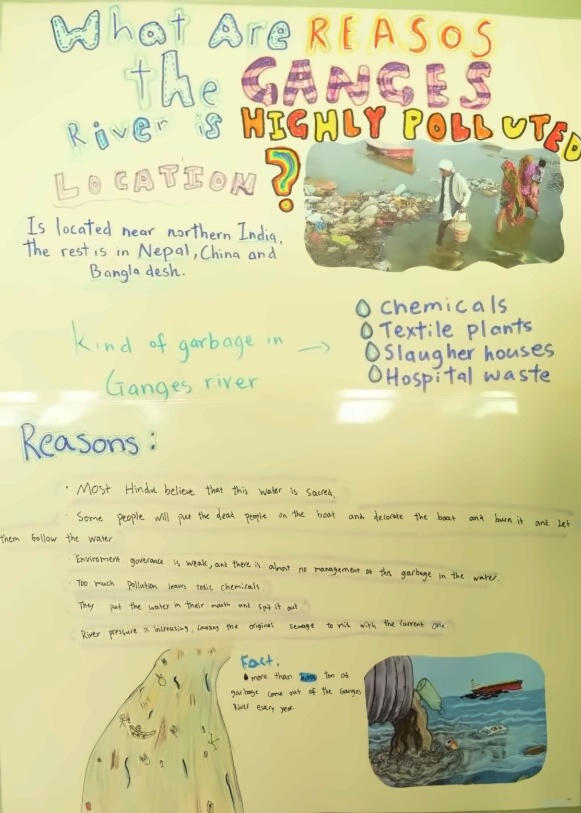 What Are REASOS
the GANGES
River is HIGHLY POLLUTED
?
LOCATION
Is located near northern India,
the rest is in Nepal, China and
Bangla desh.
Kind of garbage in →
Ganges river
Chemicals
Textile plants
Slaugher houses
Hospital waste
Reasons:
· Most Hindu believe that this water is sacred.
· Some people will put the dead people on the boat and decorate the boat ant burn it and let
them follow the water
· Enviroment goverance is weak, ant there is almost no management of this garbage in the water.
· Too much pollution leaves toxic chemicals.
· They put the water in their mouth and spit it out
· River pressure is increasing, causing the original sewage to mix with the current one
Fact.
more than ton of
garbage come out of the Ganges
River every year.